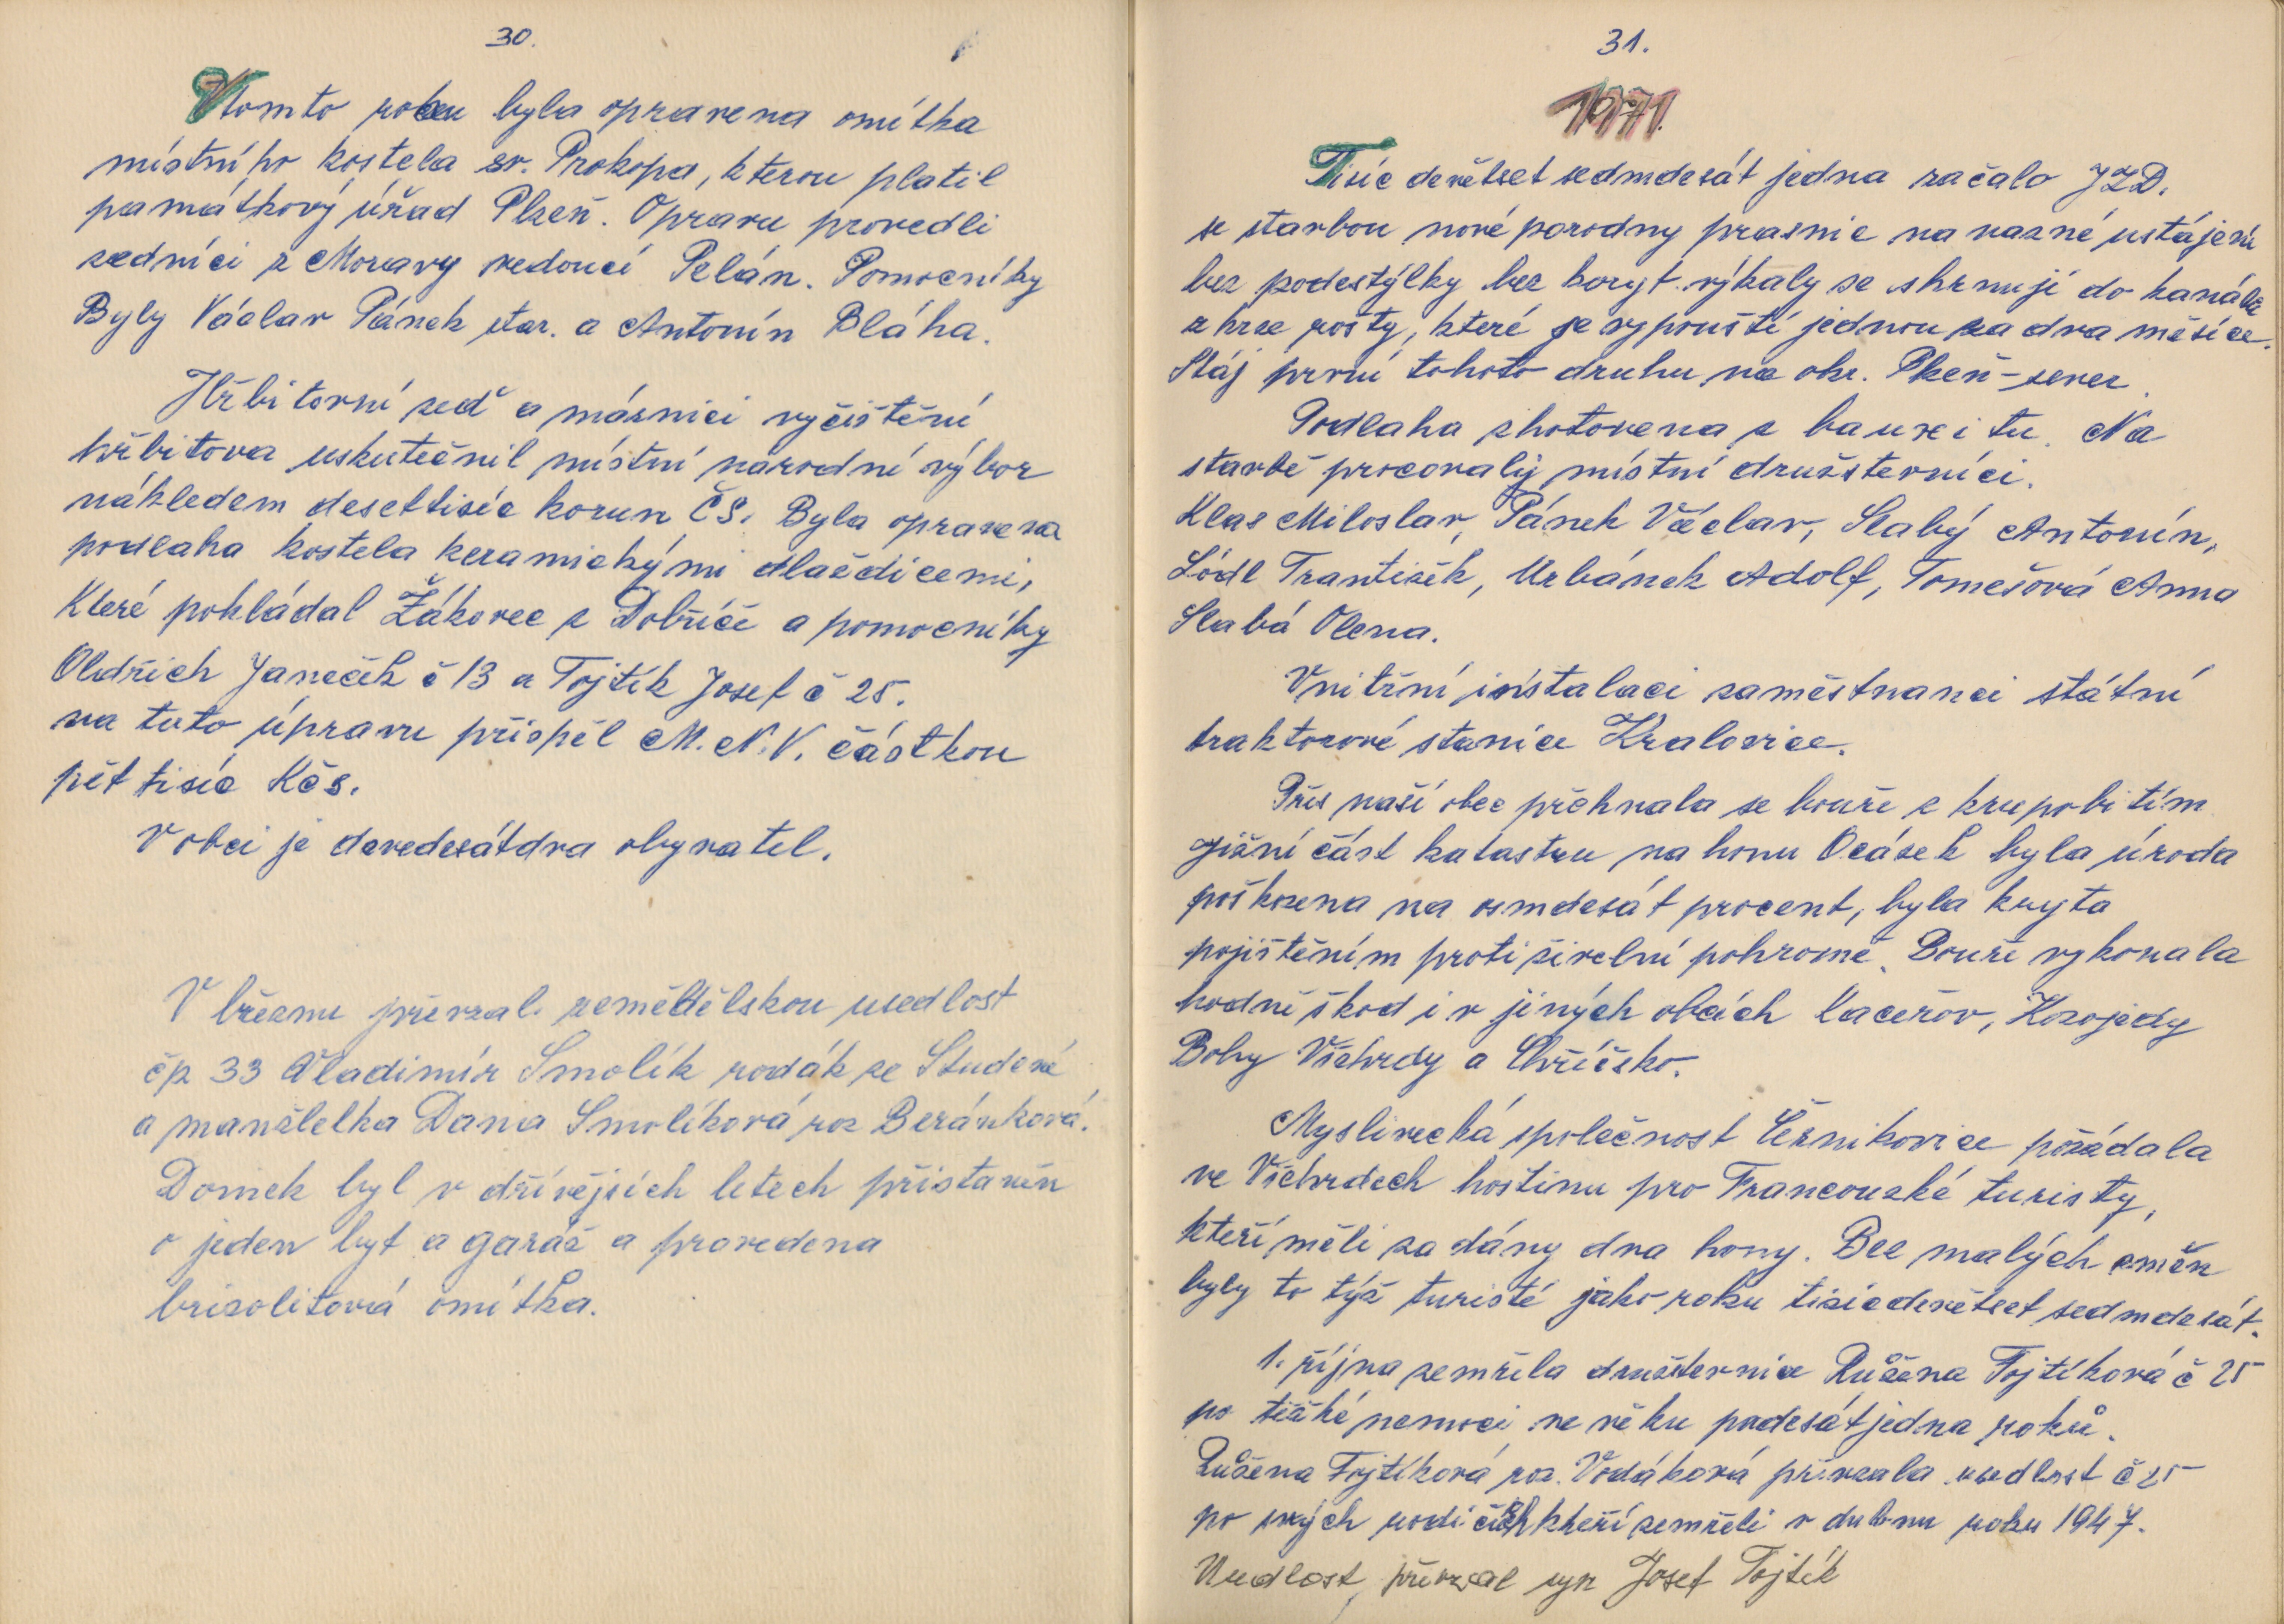 30.
V tomto roku byla opravena omítka
místního kostela sv. Prokopa, kterou platil
památkový úřad Plzeň. Opravu provedli
zedníci z Moravy vedoucí Pelán. Pomocníky
Byly Václav Pánek star. a Antonín Bláha.
Hřbitovní zeď a márnici vyčištění
hřbitova uskutečnil místní narodní výbor
nákledem desettisíc korun ČS. Byla opravena
podlaha kostela keramickými dlaždicemi,
Které pokládal Žákovec z Dobříče a pomocníky
Oldřich Janeček č 13 a Fojtík Josef č 25.
na tuto úpravu přispěl M.N.V. částkou
pět tisíc Kčs.
V obci je devedesátdva obyvatel.
V březnu převzal zemědělskou usedlost
čp 33 Vladimír Smolík rodák ze Studené
a manželka Dana Smolíková roz Beránková.
Domek byl v dřívějších letech přistavěn
o jeden byt a garáž a provedena
brizolitová omítka.
31.
1971.
Tisíc devětset sedmdesát jedna začalo JZD.
se stavbou nové porodny prasnic na vazné ustájení
bez podestýlky bez koryt výkaly se shrnují do kanálu
zkrze rošty, které se vypouští jednou za dva měsíce.
Stáj první tohoto druhu na okr. Plzeň-sever.
Podlaha zhotovena z bauxitu. Na
stavbě procovaly místní družsterníci.
Klas Miloslav, Pánek Václav, Slabý Antonín,
Lódl František, Urbánek Adolf, Tomešová Anna
Slabá Olena.
Vnitřní instalaci zaměstnanci státní
traktorové stanice Kralovice.
Přes naší obec přehnala se bouře z krupobitím
jižní část katastru na honu Ocásek byla úroda
poškozena na osmdesát procent, byla kryta
pojištěním proti živelní pohromě. Bouře vykonala
hodně škod i v jiných obcích Kaceřov, Kozojedy
Bohy Všehrdy a Chříčsko.
Myslivecká společnost Černikovice pořádala
ve Všehrdech hostinu pro Francouzké turisty,
kteří měli zadány dva hony. Bez malých změn
byly to týž turisté jako roku tisícdevětset sedmdesát.
1. října zemřela družstevnice Růžena Fojtíková č 25
po těžké nemoci ve věku padesátjedna roků.
Růžena Fojtíková roz. Vodáková převzala usedlost č 25
po svých rodičích kteří zemřeli v dubnu roku 1947.
Usedlost převzal syn Josef Fojtík